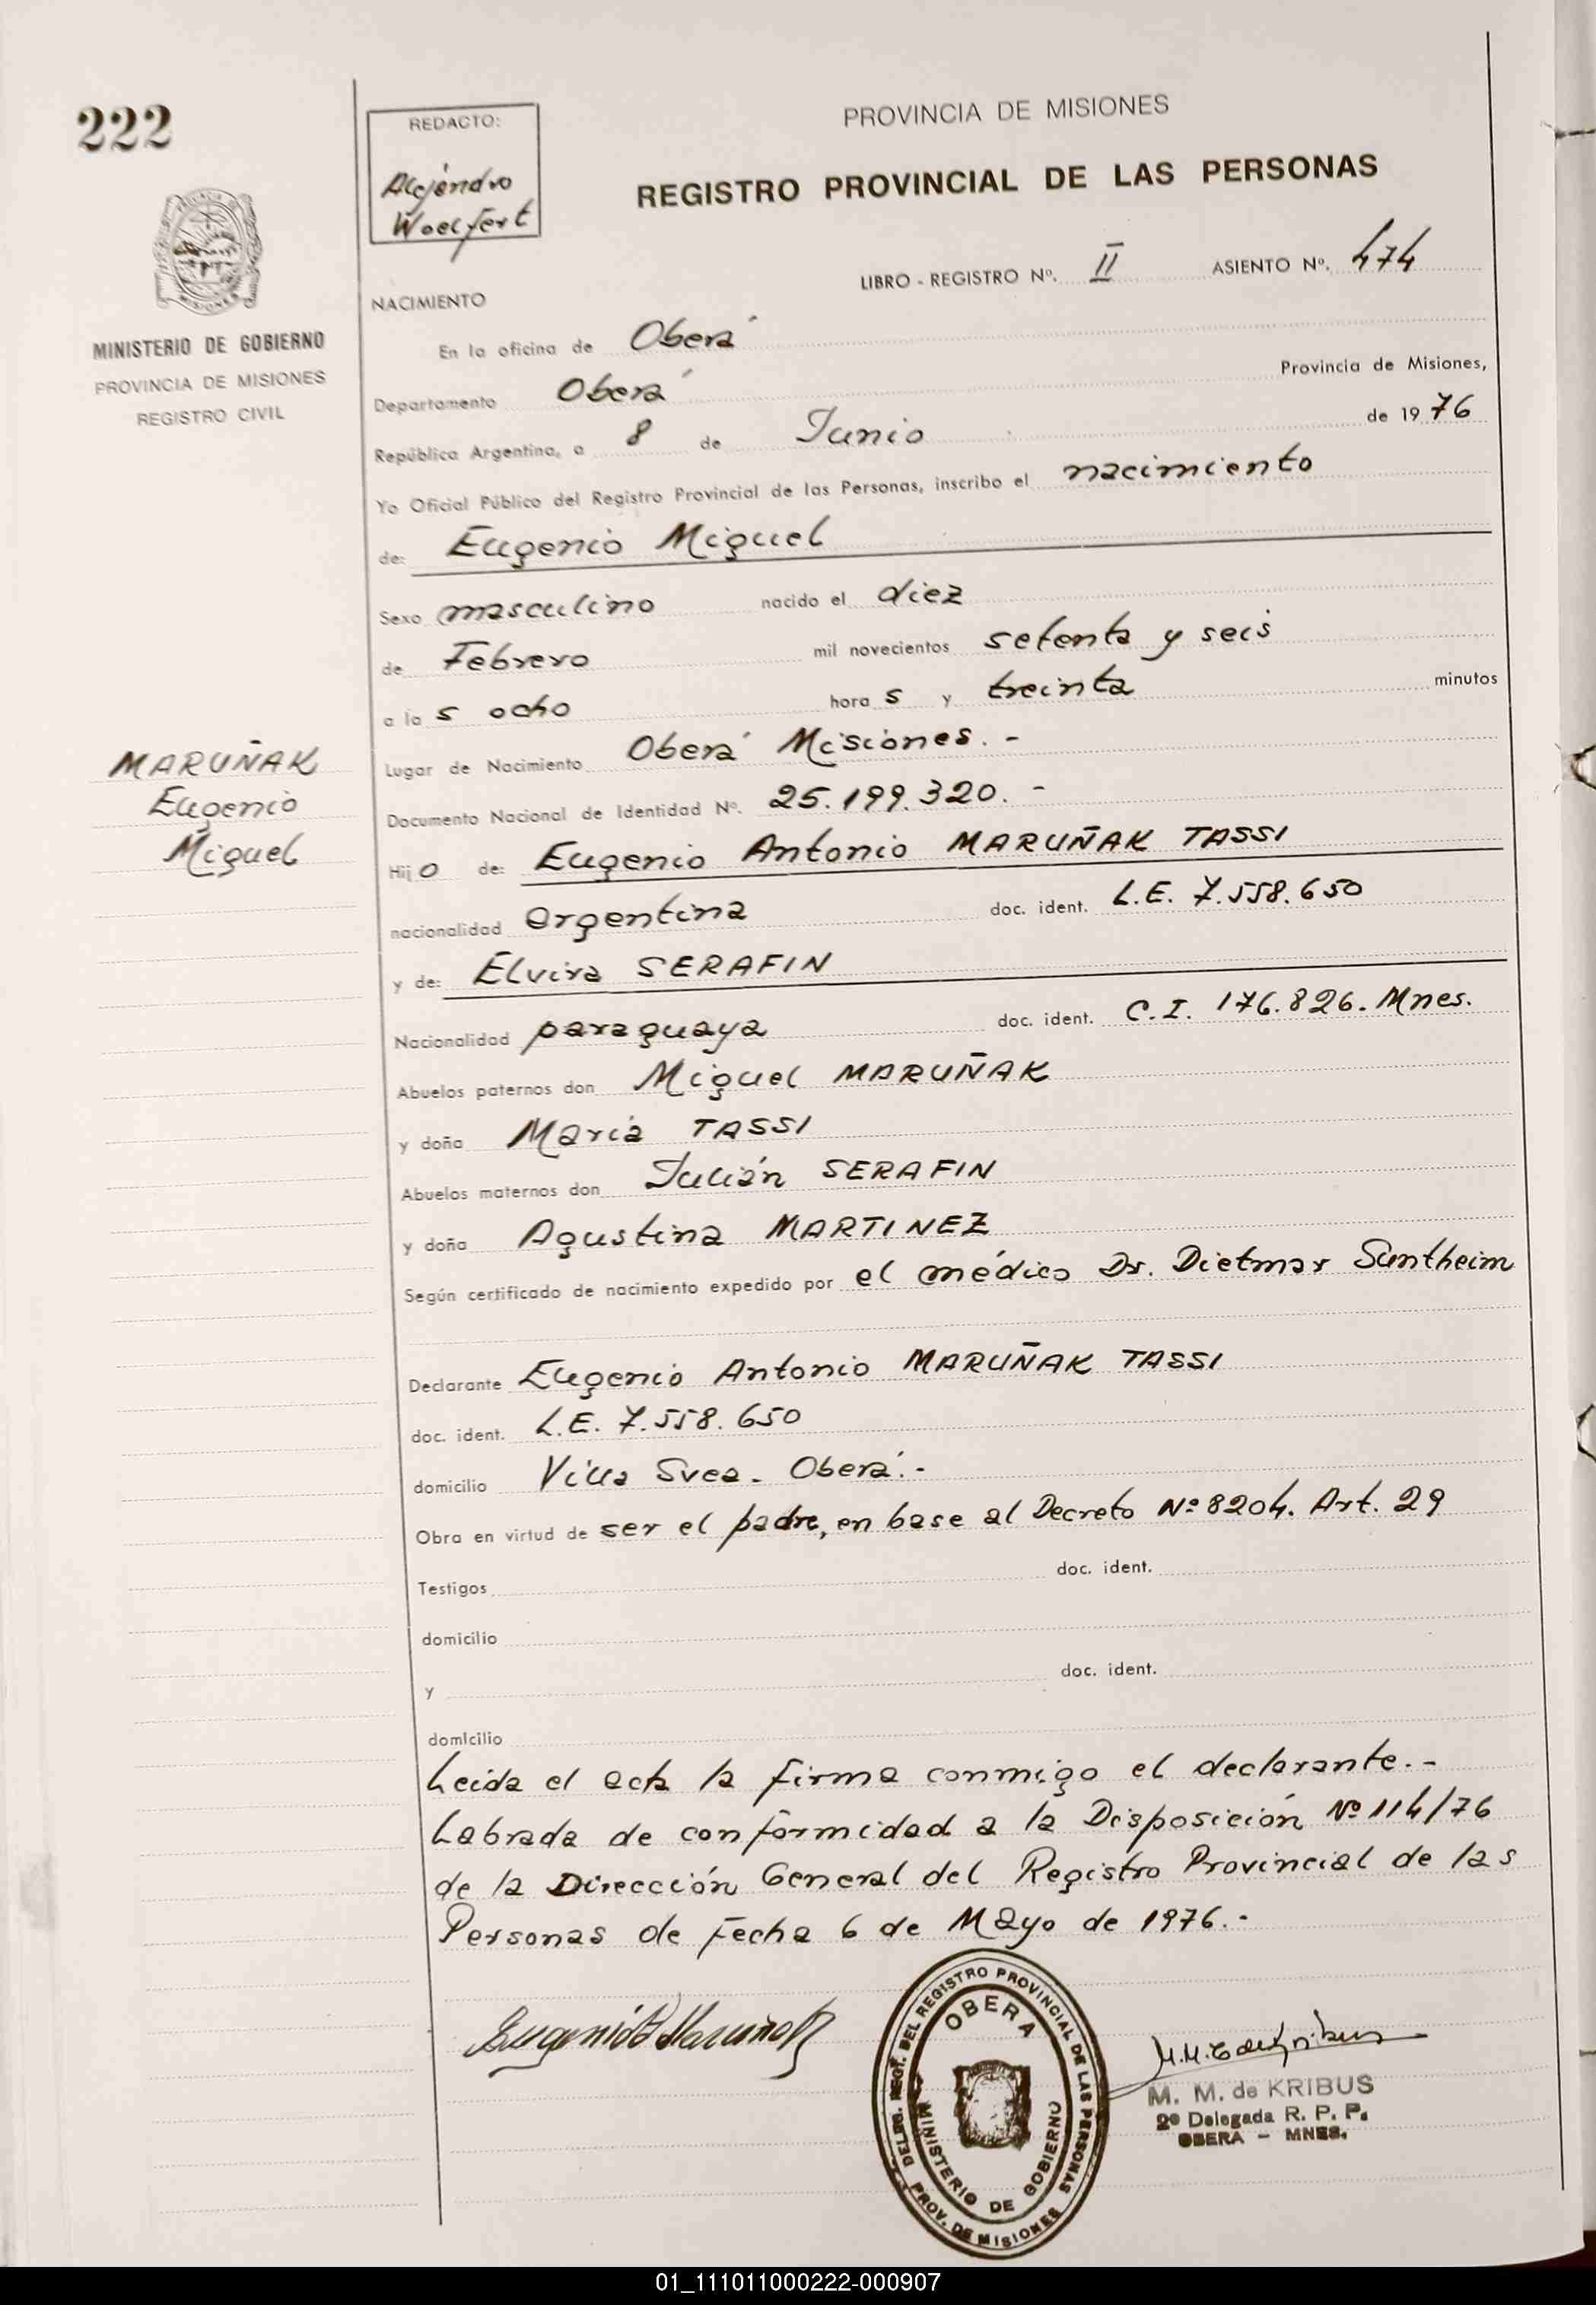 222
REDACTO:
Alejandro
Woelfert
PROVINCIA DE MISIONES
REGISTRO PROVINCIAL DE LAS PERSONAS
LIBRO - REGISTRO Nº. II ASIENTO Nº. 474
MINISTERIO DE GOBIERNO
PROVINCIA DE MISIONES
REGISTRO CIVIL
NACIMIENTO
En la oficina de Oberá
Departamento Oberá Provincia de Misiones,
República Argentina, a 8 de Junio de 1976
Yo Oficial Público del Registro Provincial de las Personas, inscribo el nacimiento
de: Eugenio Miguel
Sexo masculino nacido el diez
de Febrero mil novecientos setenta y seis
a las ocho horas y treinta minutos
Lugar de Nacimiento Oberá Misiones. -
Documento Nacional de Identidad Nº. 25.199.320. -
MARUÑAK
Eugenio
Miguel
Hijo de: Eugenio Antonio MARUÑAK TASSI
nacionalidad argentina doc. ident. L.E. 7.558.650
y de: Elvira SERAFIN
Nacionalidad paraguaya doc. ident. C.I. 176.826. Mnes.
Abuelos paternos don Miguel MARUÑAK
y doña María TASSI
Abuelos maternos don Julián SERAFIN
y doña Agustina MARTINEZ
Según certificado de nacimiento expedido por el médico Dr. Dietmar Suntheim
Declarante Eugenio Antonio MARUÑAK TASSI
doc. ident. L.E. 7.558.650
domicilio Villa Svea - Oberá.-
Obra en virtud de ser el padre, en base al Decreto Nº 8204. Art. 29
Testigos doc. ident.
domicilio
y doc. ident.
domicilio
Leida el acta la firma conmigo el declarante.-
Labrada de conformidad a la Disposición Nº 114/76
de la Dirección General del Registro Provincial de las
Personas de fecha 6 de Mayo de 1976.-
DELEG. REGT. DEL REGISTRO PROVINCIAL DE LAS PERSONAS
OBERA
MINISTERIO DE GOBIERNO
PROV. DE MISIONES
M. M. de KRIBUS
2º Delegada R. P. P.
OBERA - MNES.
01_111011000222-000907